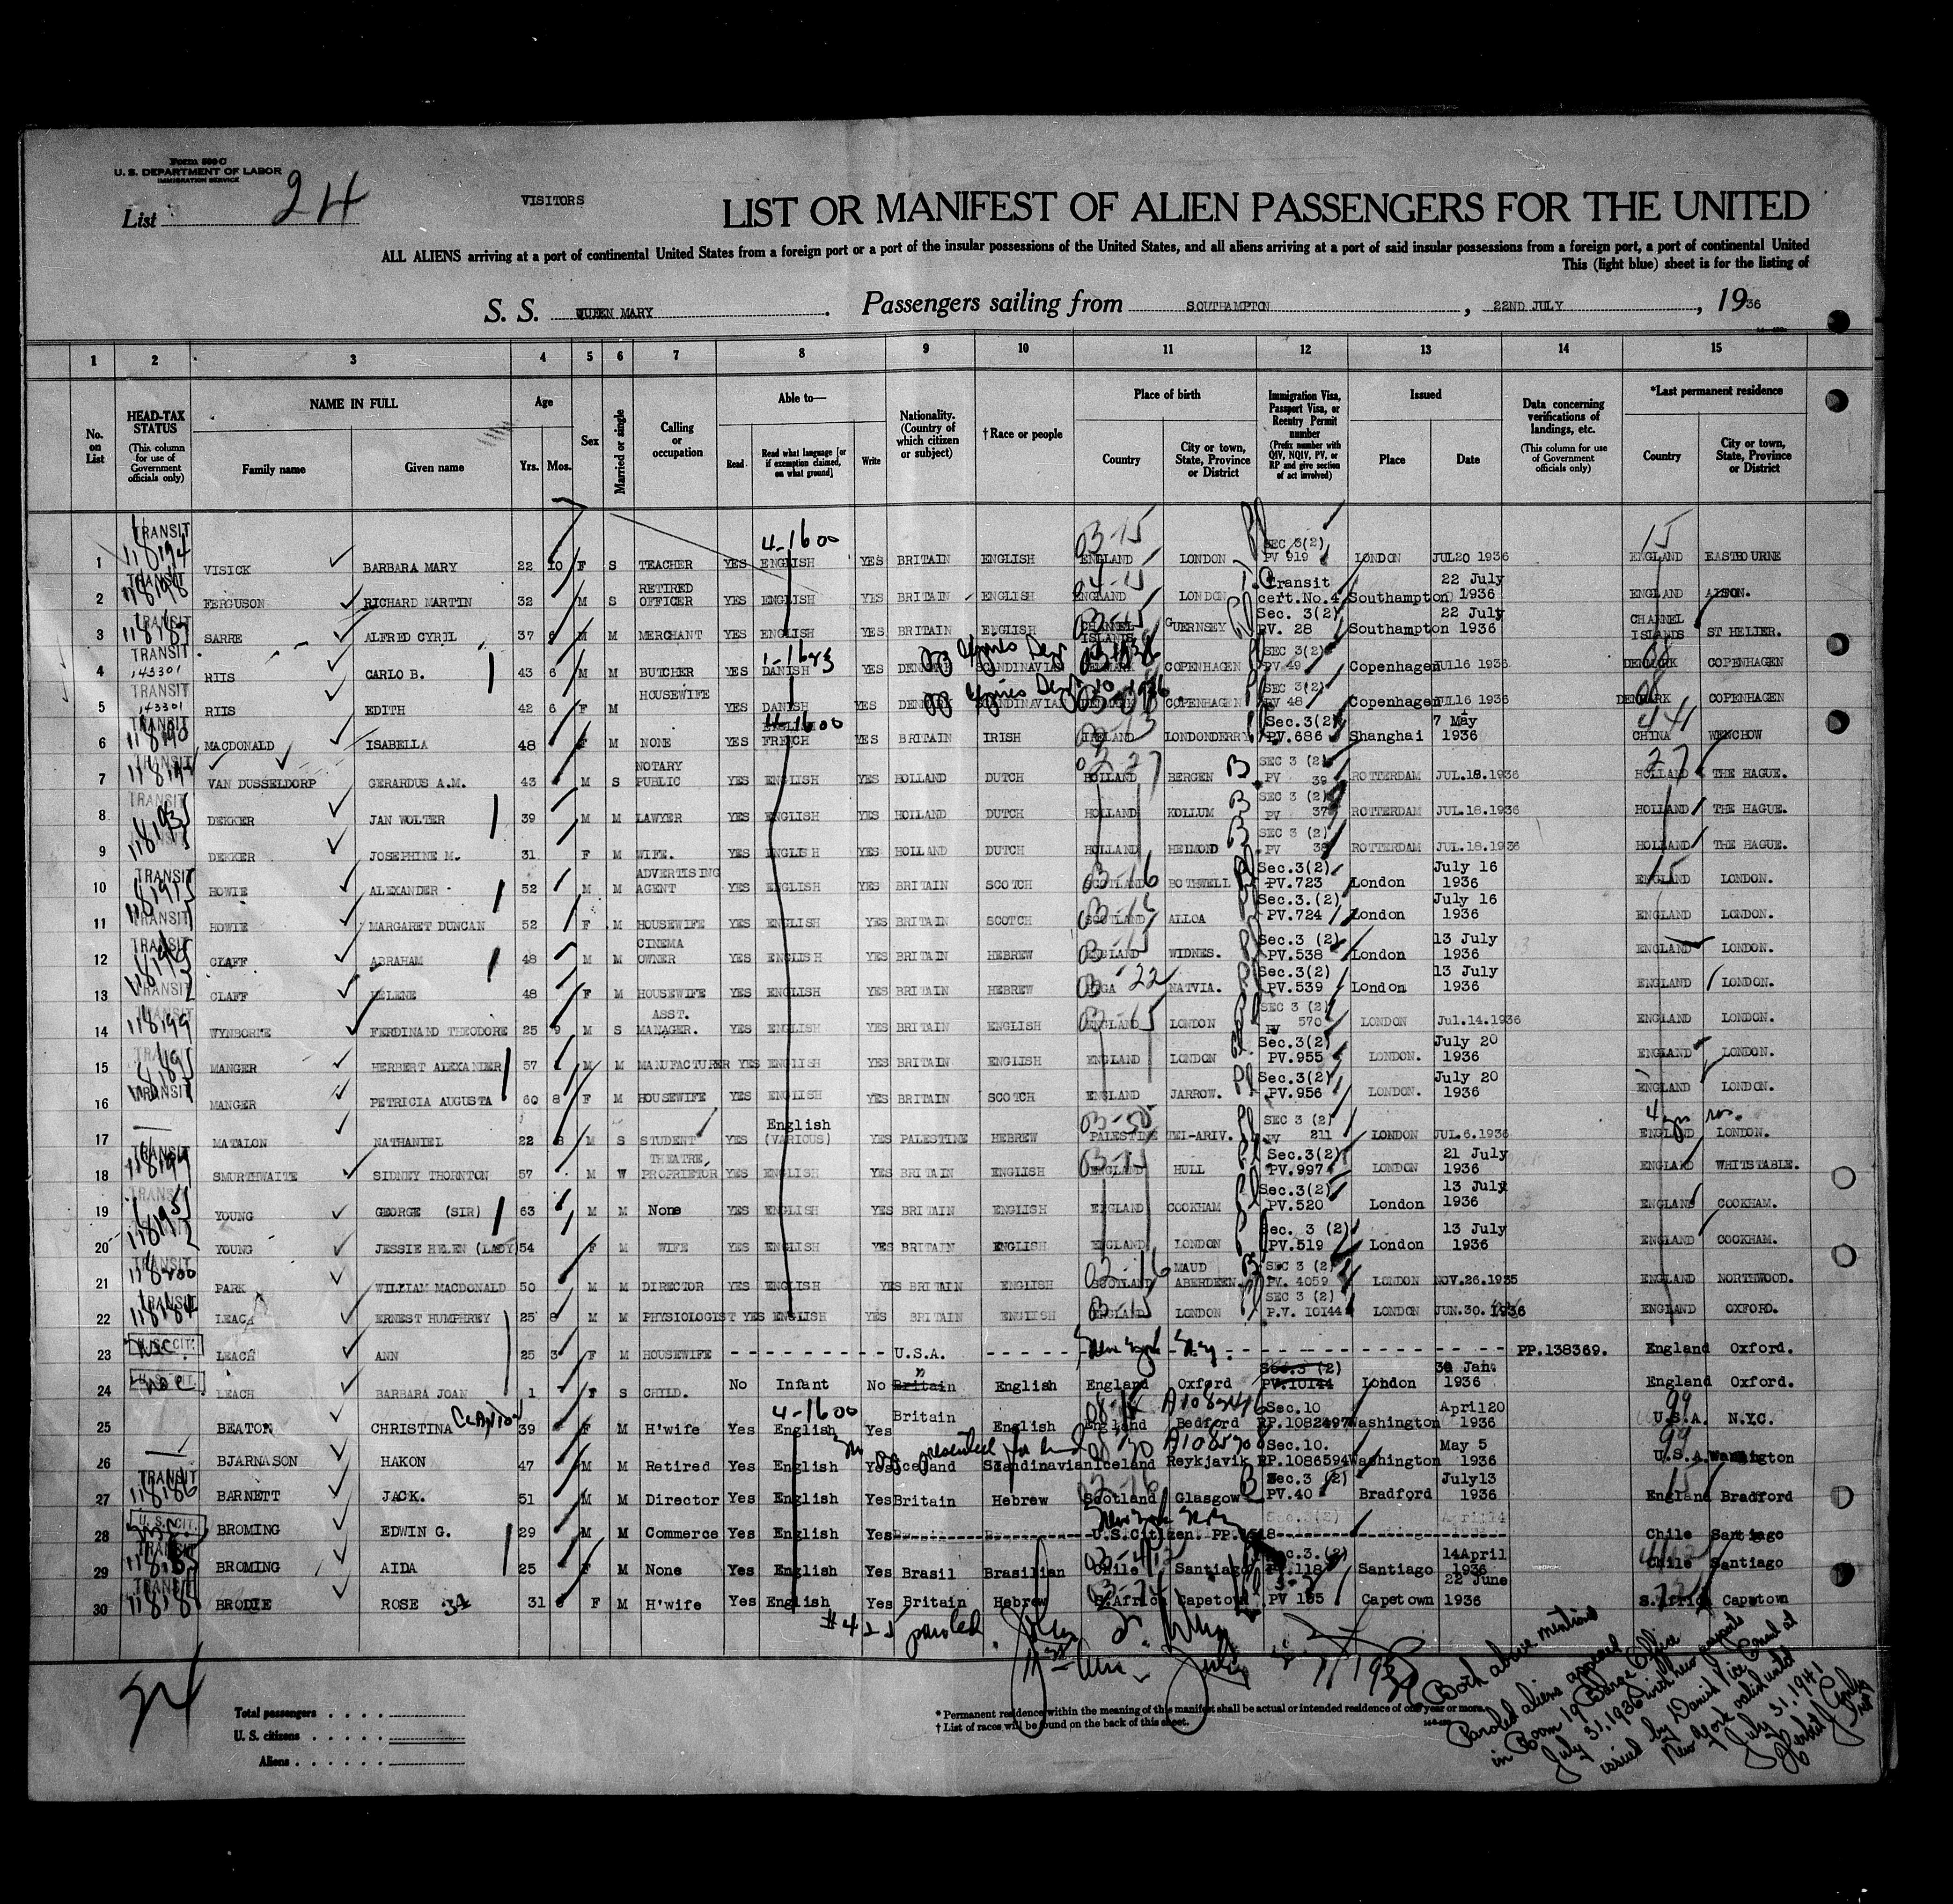 Form 500 C
U. S. DEPARTMENT OF LABOR
IMMIGRATION SERVICE
List 24
VISITORS
LIST OR MANIFEST OF ALIEN PASSENGERS FOR THE UNITED
ALL ALIENS arriving at a port of continental United States from a foreign port or a port of the insular possessions of the United States, and all aliens arriving at a port of said insular possessions from a foreign port, a port of continental United
This (light blue) sheet is for the listing of
S. S. QUEEN MARY. Passengers sailing from SOUTHAMPTON, 22ND JULY, 1936
1 2 3 4 5 6 7 8 9 10 11 12 13 14 15
No. on List
HEAD-TAX STATUS (This column for use of Government officials only)
NAME IN FULL Family name Given name
Age Yrs. Mos.
Sex
Married or single
Calling or occupation
Able to— Read Read what language [or if exemption claimed, on what ground] Write
Nationality. (Country of which citizen or subject)
†Race or people
Place of birth Country City or town, State, Province or District
Immigration Visa, Passport Visa, or Reentry Permit number (Prefix number with QIV, NQIV, PV, or RP and give section of act involved)
Issued Place Date
Data concerning verifications of landings, etc. (This column for use of Government officials only)
*Last permanent residence Country City or town, State, Province or District
1 TRANSIT 118194 VISICK BARBARA MARY 22 10 F S TEACHER YES ENGLISH 4-1600 YES BRITAIN ENGLISH ENGLAND LONDON SEC 3(2) PV 919 LONDON JUL20 1936 ENGLAND EASTBOURNE
2 TRANSIT 118198 FERGUSON RICHARD MARTIN 32 M S RETIRED OFFICER YES ENGLISH YES BRITAIN ENGLISH ENGLAND LONDON Transit cert.No.4 Southampton 22 July 1936 ENGLAND
3 TRANSIT SARRE ALFRED CYRIL 37 M M MERCHANT YES ENGLISH YES BRITAIN ENGLISH CHANNEL ISLANDS GUERNSEY Sec. 3(2) PV. 28 Southampton 22 July 1936 CHANNEL ISLANDS ST HELIER.
4 TRANSIT 143301 RIIS CARLO B. 43 6 M M BUTCHER YES DANISH YES DENMARK SCANDINAVIAN DENMARK COPENHAGEN SEC 3(2) PV 49 Copenhagen JUL16 1936 DENMARK COPENHAGEN
5 TRANSIT 143301 RIIS EDITH 42 6 F M HOUSEWIFE YES DANISH YES DENMARK SCANDINAVIAN DENMARK COPENHAGEN SEC 3(2) PV 48 Copenhagen JUL16 1936 DENMARK COPENHAGEN
6 TRANSIT 118190 MACDONALD ISABELLA 48 F M NONE YES ENGLISH FRENCH 4-1600 YES BRITAIN IRISH IRELAND LONDONDERRY Sec.3(2) PV.686 Shanghai 7 May 1936 CHINA WENCHOW
7 TRANSIT VAN DUSSELDORP GERARDUS A.M. 43 M S NOTARY PUBLIC YES ENGLISH YES HOLLAND DUTCH HOLLAND BERGEN SEC 3 (2) PV 39 ROTTERDAM JUL.18.1936 HOLLAND THE HAGUE.
8 TRANSIT DEKKER JAN WOLTER 39 M M LAWYER YES ENGLISH YES HOLLAND DUTCH HOLLAND KOLLUM SEC 3 (2) PV 37 ROTTERDAM JUL.18.1936 HOLLAND THE HAGUE.
9 TRANSIT DEKKER JOSEPHINE M. 31 F M WIFE. YES ENGLISH YES HOLLAND DUTCH HOLLAND HELMOND SEC 3 (2) PV 38 ROTTERDAM JUL.18.1936 HOLLAND THE HAGUE.
10 TRANSIT HOWIE ALEXANDER 52 M M ADVERTISING AGENT YES ENGLISH YES BRITAIN SCOTCH SCOTLAND BOTHWELL Sec.3(2) PV.723 London July 16 1936 ENGLAND LONDON.
11 TRANSIT HOWIE MARGARET DUNCAN 52 F M HOUSEWIFE YES ENGLISH YES BRITAIN SCOTCH SCOTLAND ALLOA Sec.3.(2) PV.724 London July 16 1936 ENGLAND LONDON.
12 TRANSIT CLAFF ABRAHAM 48 M M CINEMA OWNER YES ENGLISH YES BRITAIN HEBREW ENGLAND WIDNES. Sec.3 (2) PV.538 London 13 July 1936 ENGLAND LONDON.
13 TRANSIT CLAFF HELENE 48 F M HOUSEWIFE YES ENGLISH YES BRITAIN HEBREW RIGA NATVIA. Sec.3(2) PV.539 London 13 July 1936 ENGLAND LONDON.
14 118199 WYNBORNE FERDINAND THEODORE 25 9 M S ASST. MANAGER. YES ENGLISH YES BRITAIN ENGLISH ENGLAND LONDON SEC 3 (2) PV 570 LONDON Jul.14.1936 ENGLAND LONDON.
15 TRANSIT MANGER HERBERT ALEXANDER 57 M M MANUFACTURER YES ENGLISH YES BRITAIN ENGLISH ENGLAND LONDON Sec.3(2) PV.955 LONDON. July 20 1936 ENGLAND LONDON.
16 TRANSIT MANGER PETRICIA AUGUSTA 60 8 F M HOUSEWIFE YES ENGLISH YES BRITAIN SCOTCH ENGLAND JARROW. Sec.3(2) PV.956 LONDON. July 20 1936 ENGLAND LONDON.
17 MATALON NATHANIEL 22 8 M S STUDENT YES English (VARIOUS) YES PALESTINE HEBREW PALESTINE TEI-ARIV. SEC 3 (2) PV 211 LONDON JUL.6.1936 ENGLAND LONDON.
18 TRANSIT SMURTHWAITE SIDNEY THORNTON 57 M W THEATRE PROPRIETOR YES ENGLISH YES BRITAIN ENGLISH ENGLAND HULL Sec.3(2) PV.997 LONDON 21 July 1936 ENGLAND WHITSTABLE.
19 TRANSIT YOUNG GEORGE (SIR) 63 M M None YES ENGLISH YES BRITAIN ENGLISH ENGLAND COOKHAM Sec.3(2) PV.520 London 13 July 1936 ENGLAND COOKHAM.
20 YOUNG JESSIE HELEN (LADY) 54 F M WIFE YES ENGLISH YES BRITAIN ENGLISH ENGLAND LONDON Sec. 3 (2) PV.519 London 13 July 1936 ENGLAND COOKHAM.
21 TRANSIT 118200 PARK WILLIAM MACDONALD 50 M M DIRECTOR YES ENGLISH YES BRITAIN ENGLISH SCOTLAND MAUD ABERDEEN. SEC 3 (2) PV. 4059 LONDON NOV.26.1935 ENGLAND NORTHWOOD.
22 TRANSIT 118184 LEACH ERNEST HUMPHREY 25 8 M M PHYSIOLOGIST YES ENGLISH YES BRITAIN ENGLISH ENGLAND LONDON SEC 3 (2) P.V. 10144 LONDON JUN.30.1936 ENGLAND OXFORD.
23 U.S. CIT. LEACH ANN 25 3 F M HOUSEWIFE U.S.A. New York N.Y. PP.138369. England Oxford.
24 U.S. CIT. LEACH BARBARA JOAN 1 F S CHILD. No Infant No Britain English England Oxford Sec.3 (2) PV.10144 London 30 Jan. 1936 England Oxford.
25 BEATON CHRISTINA CLANTON 39 F M H'wife Yes English 4-1600 Yes Britain English England Bedford Sec.10 RP.1082497 Washington April20 1936 U.S.A. N.Y.C.
26 BJARNASON HAKON 47 M M Retired Yes English Yes Iceland Scandinavian Iceland Reykjavik Sec.10. RP.1086594 Washington May 5 1936 U.S.A. Washington
27 TRANSIT 118186 BARNETT JACK. 51 M M Director Yes English Yes Britain Hebrew Scotland Glasgow Sec.3 (2) PV.40 Bradford July13 1936 England Bradford
28 U.S. CIT. BROMING EDWIN G. 29 M M Commerce Yes English Yes U.S.Citizen. Chile Santiago
29 TRANSIT BROMING AIDA 25 F M None Yes English Yes Brasil Brasilian Chile Santiago Sec.3.(2) PV.118 Santiago 14April 1936 Chile Santiago
30 TRANSIT BRODIE ROSE 31 F M H'wife Yes English Yes Britain Hebrew S.Africa Capetown PV 155 Capetown 22 June 1936 S.Africa Capetown
paroled
24
Total passengers
U. S. citizens
Aliens
* Permanent residence within the meaning of this manifest shall be actual or intended residence of one year or more.
† List of races will be found on the back of this sheet.
Both above mentioned
Paroled aliens appeared
in Room 19 Barge Office
July 31, 1936 with new passports
issued by Danish Vice Consul at
New York valid until
July 31, 1941